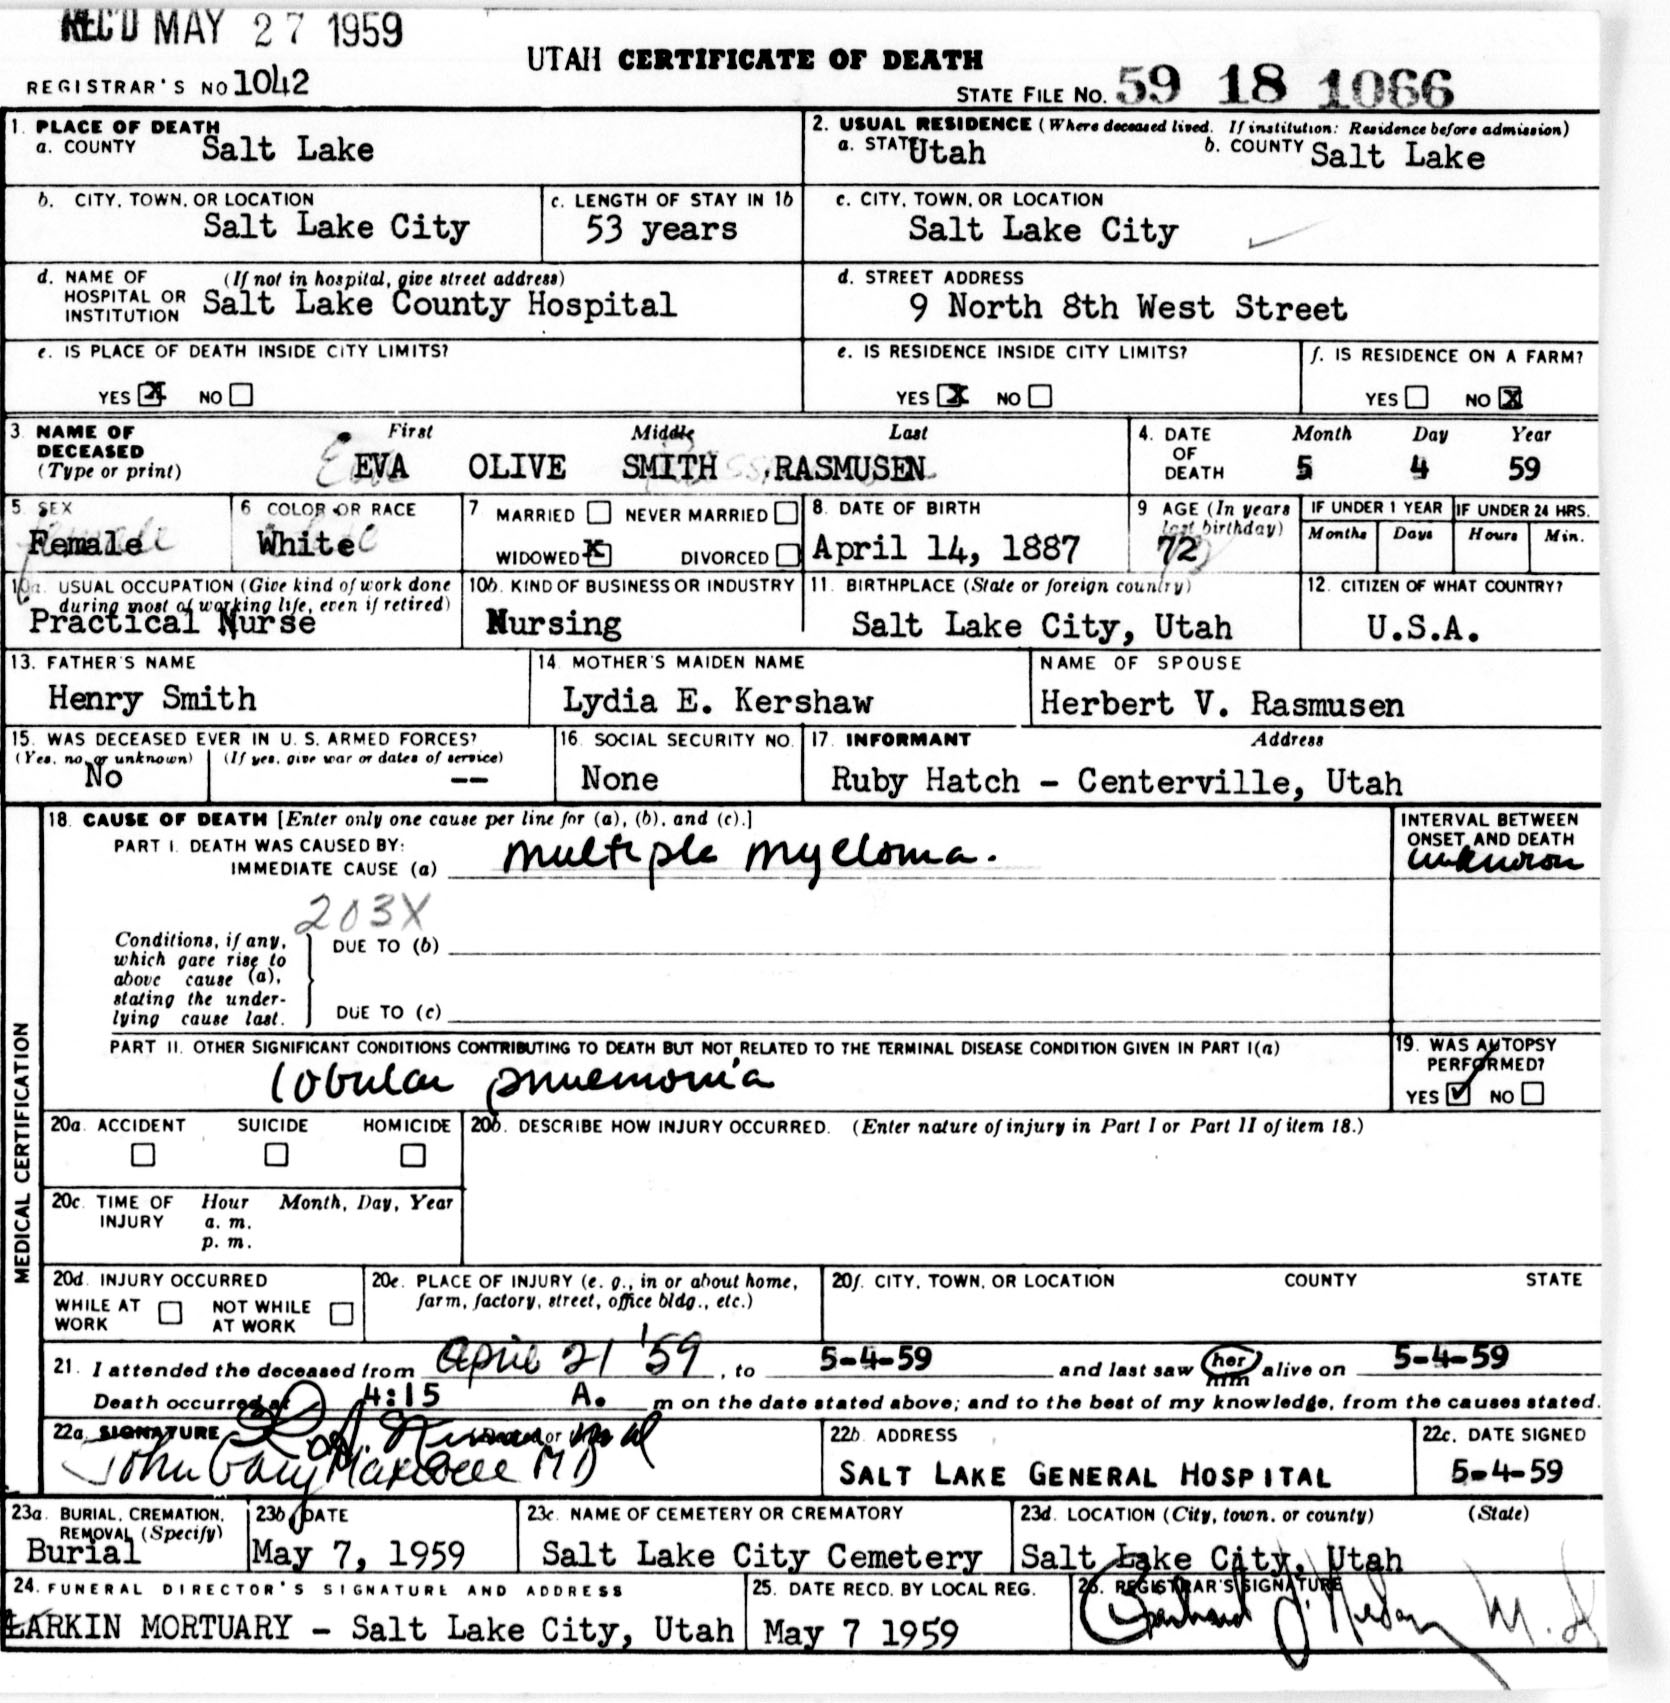 REC'D MAY 27 1959
UTAH CERTIFICATE OF DEATH
REGISTRAR'S NO 1042
STATE FILE NO. 59 18 1066
1. PLACE OF DEATH
a. COUNTY Salt Lake
2. USUAL RESIDENCE (Where deceased lived. If institution: Residence before admission)
a. STATE Utah b. COUNTY Salt Lake
b. CITY, TOWN, OR LOCATION
Salt Lake City
c. LENGTH OF STAY IN 1b
53 years
c. CITY, TOWN, OR LOCATION
Salt Lake City
d. NAME OF HOSPITAL OR INSTITUTION (If not in hospital, give street address)
Salt Lake County Hospital
d. STREET ADDRESS
9 North 8th West Street
e. IS PLACE OF DEATH INSIDE CITY LIMITS?
YES X NO
e. IS RESIDENCE INSIDE CITY LIMITS?
YES X NO
f. IS RESIDENCE ON A FARM?
YES NO X
3. NAME OF DECEASED (Type or print)
First Middle Last
EVA OLIVE SMITH RASMUSEN
4. DATE OF DEATH
Month Day Year
5 4 59
5. SEX
Female
6 COLOR OR RACE
White
7 MARRIED NEVER MARRIED
WIDOWED X DIVORCED
8. DATE OF BIRTH
April 14, 1887
9 AGE (In years last birthday)
72
IF UNDER 1 YEAR
Months Days
IF UNDER 24 HRS.
Hours Min.
10a. USUAL OCCUPATION (Give kind of work done during most of working life, even if retired)
Practical Nurse
10b. KIND OF BUSINESS OR INDUSTRY
Nursing
11. BIRTHPLACE (State or foreign country)
Salt Lake City, Utah
12. CITIZEN OF WHAT COUNTRY?
U.S.A.
13. FATHER'S NAME
Henry Smith
14. MOTHER'S MAIDEN NAME
Lydia E. Kershaw
NAME OF SPOUSE
Herbert V. Rasmusen
15. WAS DECEASED EVER IN U. S. ARMED FORCES?
(Yes, no, or unknown) (If yes, give war or dates of service)
No --
16. SOCIAL SECURITY NO.
None
17. INFORMANT Address
Ruby Hatch - Centerville, Utah
MEDICAL CERTIFICATION
18. CAUSE OF DEATH [Enter only one cause per line for (a), (b), and (c).]
PART I. DEATH WAS CAUSED BY:
IMMEDIATE CAUSE (a) multiple myeloma.
INTERVAL BETWEEN ONSET AND DEATH
unknown
203X
Conditions, if any, which gave rise to above cause (a), stating the underlying cause last.
DUE TO (b)
DUE TO (c)
PART II. OTHER SIGNIFICANT CONDITIONS CONTRIBUTING TO DEATH BUT NOT RELATED TO THE TERMINAL DISEASE CONDITION GIVEN IN PART I(a)
lobular pnuemonia
19. WAS AUTOPSY PERFORMED?
YES ✓ NO
20a. ACCIDENT SUICIDE HOMICIDE
20b. DESCRIBE HOW INJURY OCCURRED. (Enter nature of injury in Part I or Part II of item 18.)
20c. TIME OF INJURY Hour Month, Day, Year
a. m.
p. m.
20d. INJURY OCCURRED
WHILE AT WORK NOT WHILE AT WORK
20e. PLACE OF INJURY (e. g., in or about home, farm, factory, street, office bldg., etc.)
20f. CITY, TOWN, OR LOCATION COUNTY STATE
21. I attended the deceased from April 21 '59, to 5-4-59 and last saw her him alive on 5-4-59
Death occurred at 4:15 A. m on the date stated above; and to the best of my knowledge, from the causes stated.
22a. SIGNATURE
John Gary Maxwell MD
22b. ADDRESS
SALT LAKE GENERAL HOSPITAL
22c. DATE SIGNED
5-4-59
23a. BURIAL, CREMATION, REMOVAL (Specify)
Burial
23b. DATE
May 7, 1959
23c. NAME OF CEMETERY OR CREMATORY
Salt Lake City Cemetery
23d. LOCATION (City, town, or county) (State)
Salt Lake City, Utah
24. FUNERAL DIRECTOR'S SIGNATURE AND ADDRESS
LARKIN MORTUARY - Salt Lake City, Utah
25. DATE RECD. BY LOCAL REG.
May 7 1959
26. REGISTRAR'S SIGNATURE